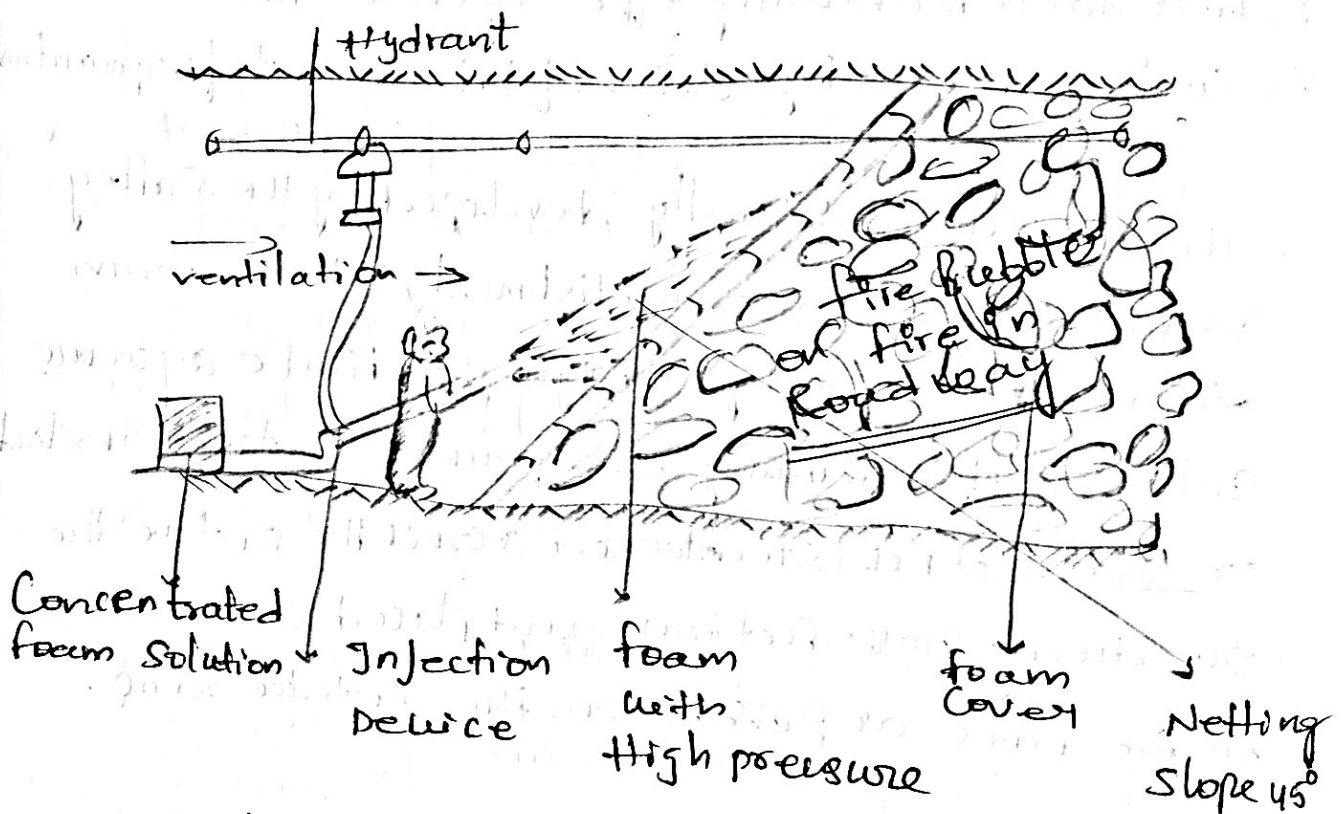 Hydrant
ventilation →
fire Bubble
on fire in
Roadway
Concentrated
foam Solution
Injection
Device
foam
with
High pressure
foam
Cover
Netting
Slope 45°